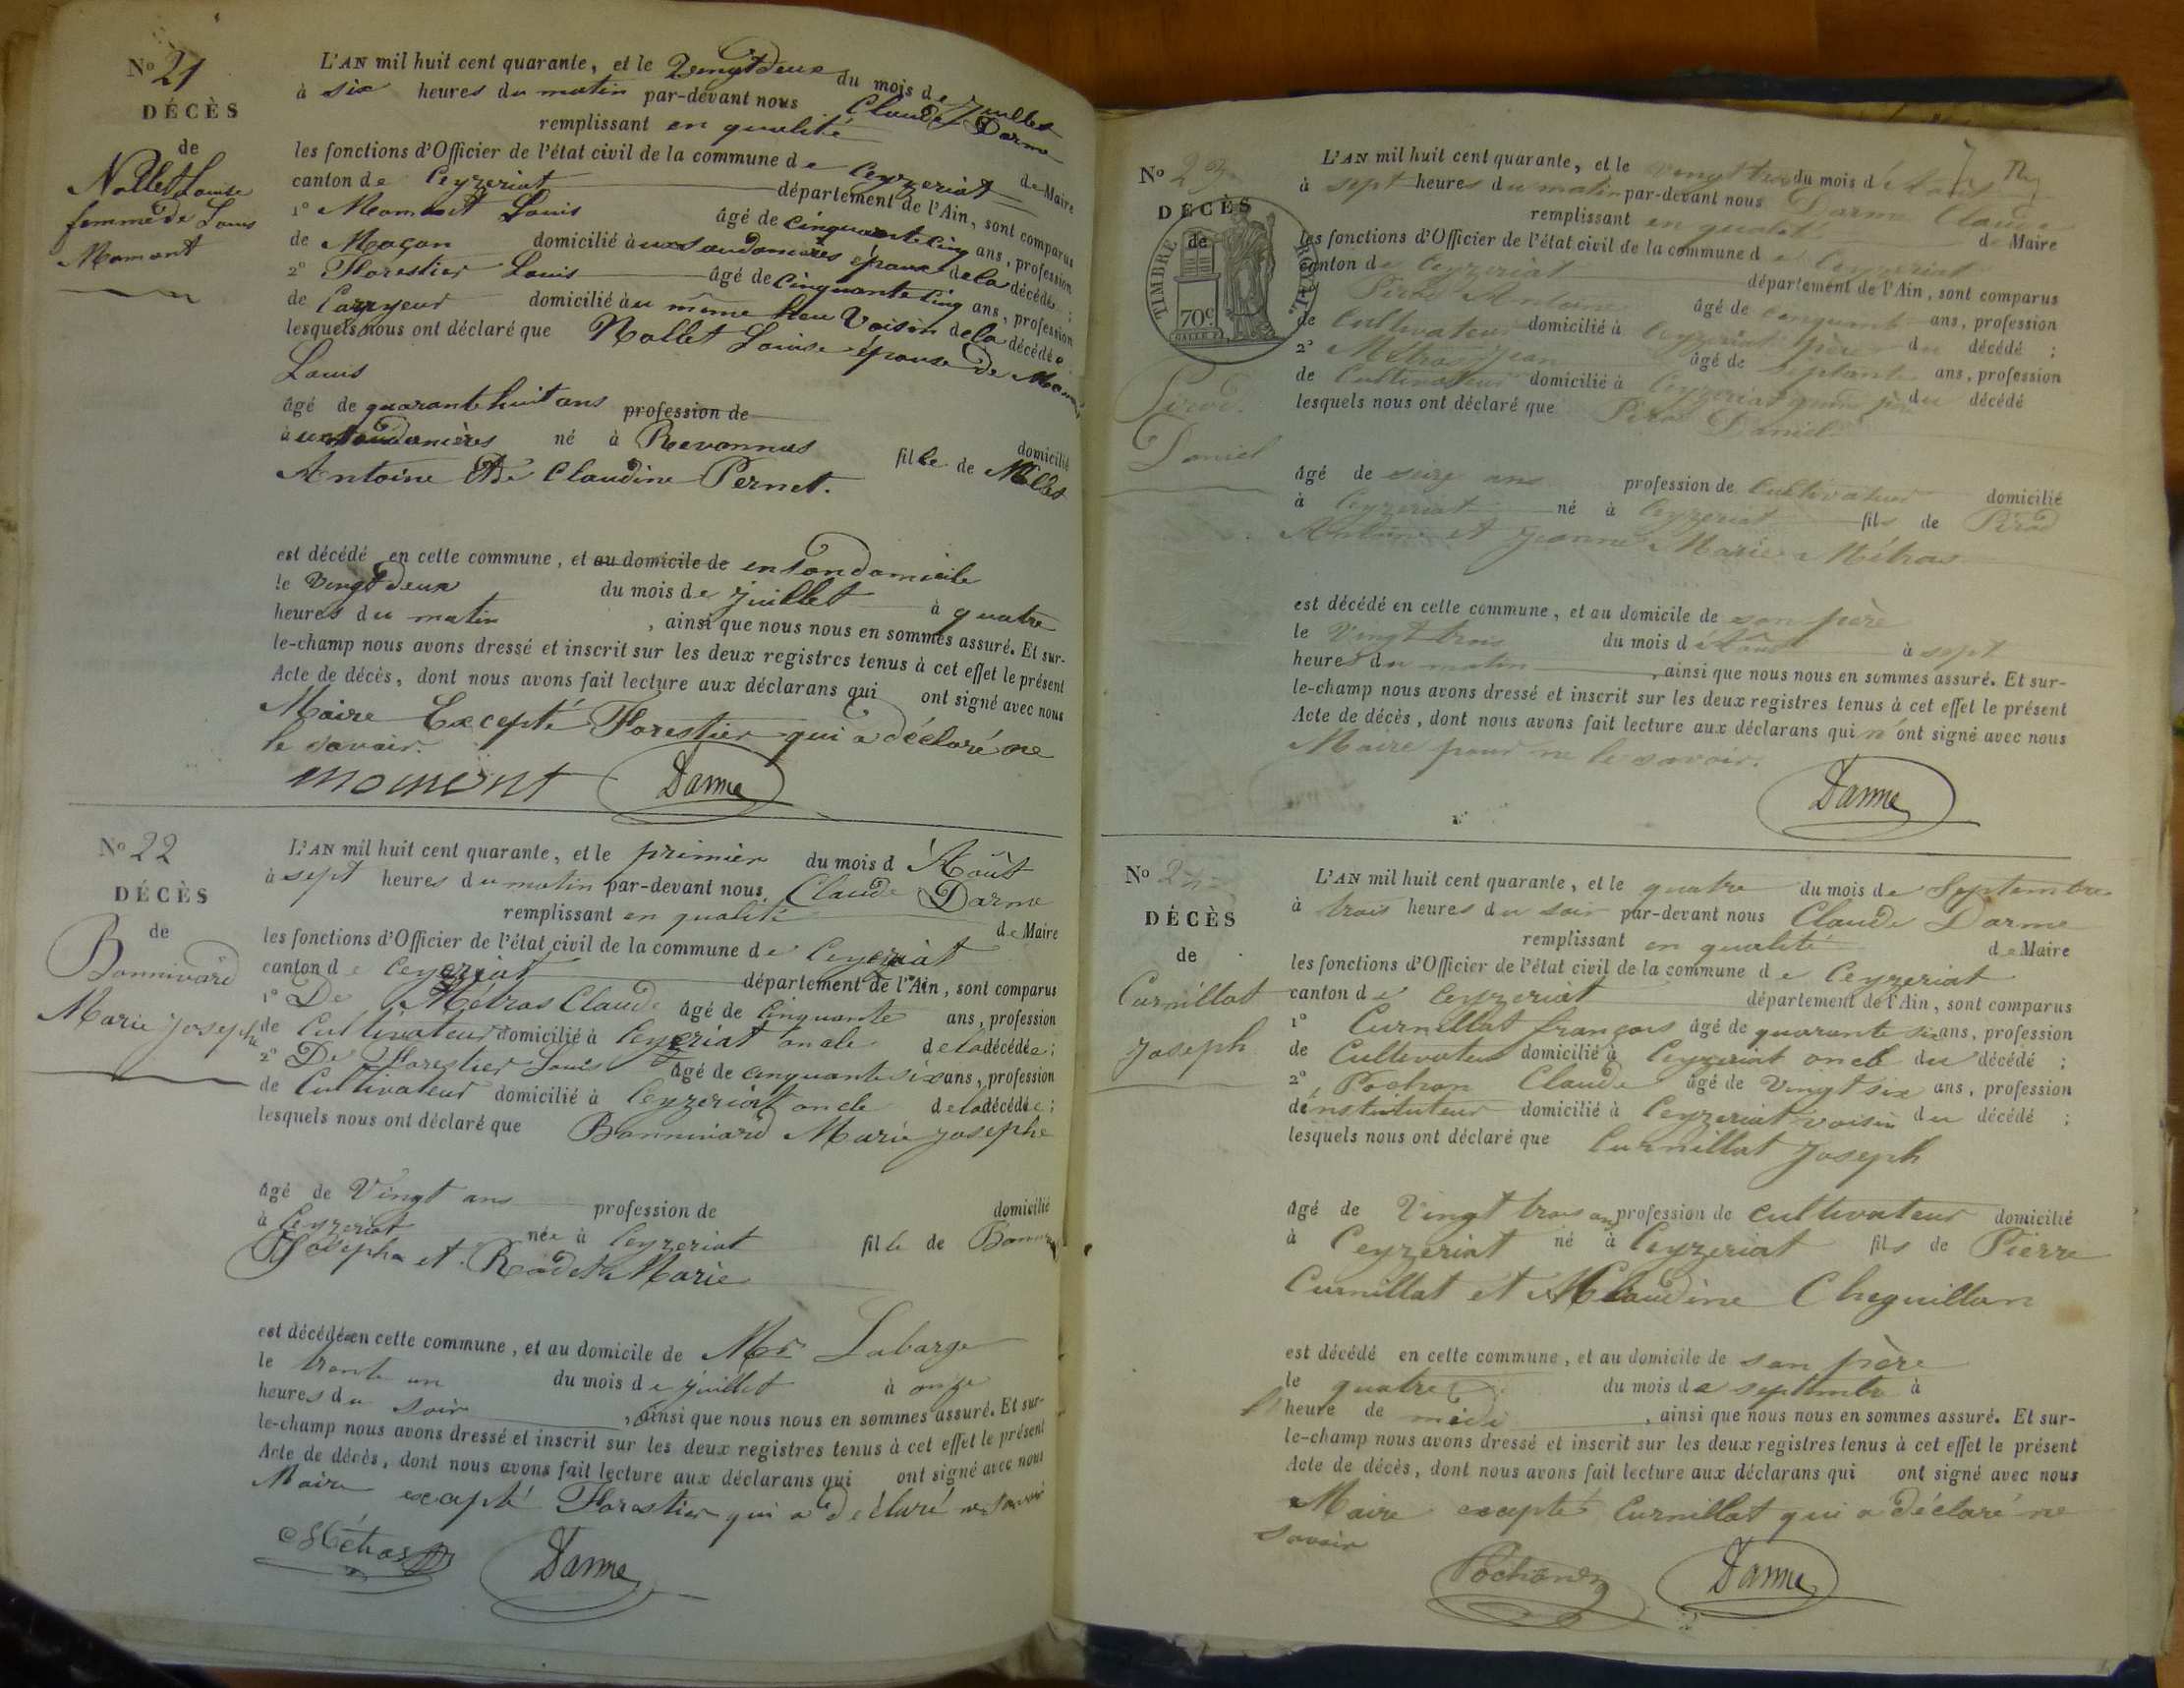 No 21
DÉCÈS
de
Nallet Louise
femme de Louis
Momont
L'AN mil huit cent quarante, et le Vingt deux du mois de Juillet
à six heures du matin par-devant nous Claude Darme
remplissant en qualité de Maire
les fonctions d'Officier de l'état civil de la commune de Ceyzeriat
canton de Ceyzeriat département de l'Ain, sont comparus
1° Momont Louis âgé de cinquante cinq ans, profession
de Maçon domicilié aux Soudanières époux de la décédée ;
2° Florestier Louis âgé de cinquante cinq ans, profession
de domicilié au même lieu Voisin de la décédée
lesquels nous ont déclaré que Nallet Louise épouse de
Louis
âgé de quarante huit ans profession de domicilié
à né à Revonnas fille de
Antoine Et De Claudine Pernet.
est décédé en cette commune, et au domicile de en son domicile
le vingt deux du mois de juillet à quatre
heures du matin, ainsi que nous nous en sommes assuré. Et sur-
le-champ nous avons dressé et inscrit sur les deux registres tenus à cet effet le présent
Acte de décès, dont nous avons fait lecture aux déclarans qui ont signé avec nous
Maire Excepté Florestier qui a déclaré ne
le savoir.
momont Darme
No 22
DÉCÈS
de
Bonnivard
Marie Josephe
L'AN mil huit cent quarante, et le primier du mois d'Août
à sept heures du matin par-devant nous Claude Darme
remplissant en qualité de Maire
les fonctions d'Officier de l'état civil de la commune de Ceyzeriat
canton de Ceyzeriat département de l'Ain, sont comparus
1° De Métras Claude âgé de Cinquante ans, profession
de Cultivateur domicilié à Ceyzeriat oncle de la décédée ;
2° De Florestier Louis âgé de cinquante six ans, profession
de Cultivateur domicilié à Ceyzeriat oncle de la décédée ;
lesquels nous ont déclaré que Bonnivard Marie josephe
âgé de Vingt ans profession de domicilié
à Ceyzeriat née à Ceyzeriat fille de
Josepha et Rodet Marie
est décédée en cette commune, et au domicile de Mr Labarge
le trente un du mois de juillet à onze
heures du soir, ainsi que nous nous en sommes assuré. Et sur-
le-champ nous avons dressé et inscrit sur les deux registres tenus à cet effet le présent
Acte de décès, dont nous avons fait lecture aux déclarans qui ont signé avec nous
Maire excepté Florestier qui a déclaré ne savoir
Métras Darme
No 23
DÉCÈS
de
TIMBRE ROYAL
70c
Pirod
Daniel
L'AN mil huit cent quarante, et le vingt trois du mois d'Août
à sept heures du matin par-devant nous Darme Claude
remplissant en qualité de Maire
les fonctions d'Officier de l'état civil de la commune de Ceyzeriat
canton de Ceyzeriat département de l'Ain, sont comparus
Pirod Antoine âgé de cinquante ans, profession
de Cultivateur domicilié à Ceyzeriat père du décédé ;
2° Métras Jean âgé de septante ans, profession
de Cultivateur domicilié à Ceyzeriat grand père du décédé
lesquels nous ont déclaré que Pirod Daniel
âgé de seize ans profession de Cultivateur domicilié
à Ceyzeriat né à Ceyzeriat fils de Pirod
Antoine et Jeanne Marie Métras
est décédé en cette commune, et au domicile de son père
le Vingt trois du mois d'Août à sept
heures du matin, ainsi que nous nous en sommes assuré. Et sur-
le-champ nous avons dressé et inscrit sur les deux registres tenus à cet effet le présent
Acte de décès, dont nous avons fait lecture aux déclarans qui n'ont signé avec nous
Maire pour ne le savoir.
Darme
No 24
DÉCÈS
de
Curnillat
Joseph
L'AN mil huit cent quarante, et le quatre du mois de Septembre
à trois heures du soir par-devant nous Claude Darme
remplissant en qualité de Maire
les fonctions d'Officier de l'état civil de la commune de Ceyzeriat
canton de Ceyzeriat département de l'Ain, sont comparus
1° Curnillat françois âgé de quarante six ans, profession
de Cultivateur domicilié à Ceyzeriat oncle du décédé ;
2° Pochon Claude âgé de Vingt six ans, profession
d'instituteur domicilié à Ceyzeriat voisin du décédé ;
lesquels nous ont déclaré que Curnillat Joseph
âgé de Vingt trois ans profession de cultivateur domicilié
à Ceyzeriat né à Ceyzeriat fils de Pierre
Curnillat et Claudine Cheguillon
est décédé en cette commune, et au domicile de son père
le quatre du mois de septembre à
l'heure de midi, ainsi que nous nous en sommes assuré. Et sur-
le-champ nous avons dressé et inscrit sur les deux registres tenus à cet effet le présent
Acte de décès, dont nous avons fait lecture aux déclarans qui ont signé avec nous
Maire excepté Curnillat qui a déclaré ne
savoir
Pochon Darme